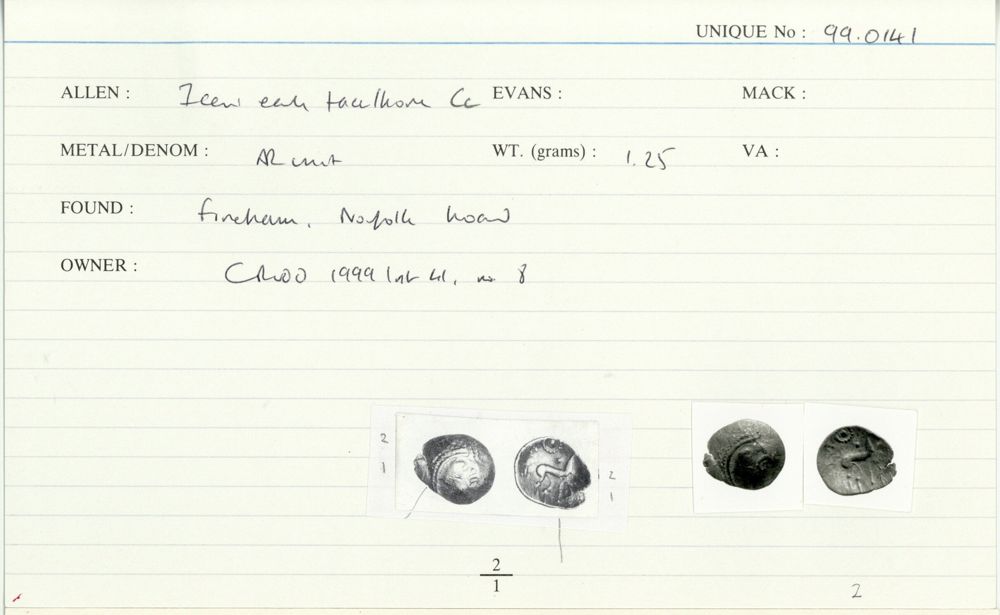 UNIQUE No : 99.0141
ALLEN : Iceni early face/horse Cc EVANS : MACK :
METAL/DENOM : AR unit WT. (grams) : 1.25 VA :
FOUND : Fincham, Norfolk hoard
OWNER : 1999 41, no 8
2
1
2
1
2
1
2